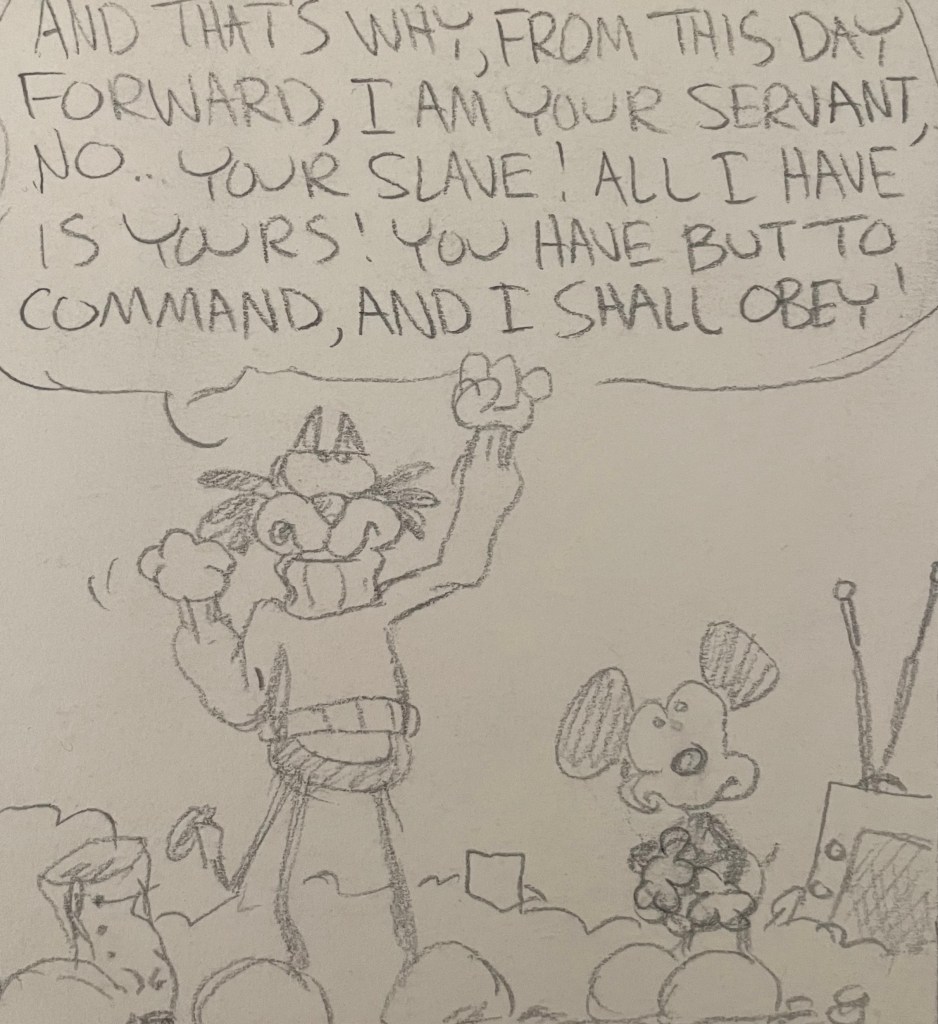 AND THAT'S WHY, FROM THIS DAY
FORWARD, I AM YOUR SERVANT,
NO.. YOUR SLAVE! ALL I HAVE
IS YOURS! YOU HAVE BUT TO
COMMAND, AND I SHALL OBEY!